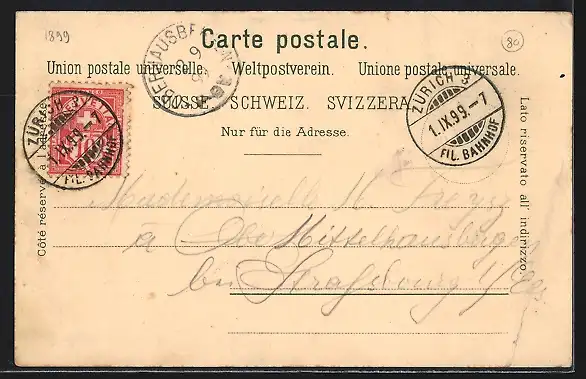 1899
80
Carte postale.
Union postale universelle. Weltpostverein. Unione postale universale.
SUISSE. SCHWEIZ. SVIZZERA.
Nur für die Adresse.
Côté réservé à l'adresse.
Lato riservato all' indirizzo.
ZÜRICH 3
1.IX.99.-7
FIL. BAHNHOF
ZÜRICH 3
1.IX.99.-7
FIL. BAHNHOF
Mademoiselle M.
a Ober Mittelhausbergen
bei Strassburg i/Els